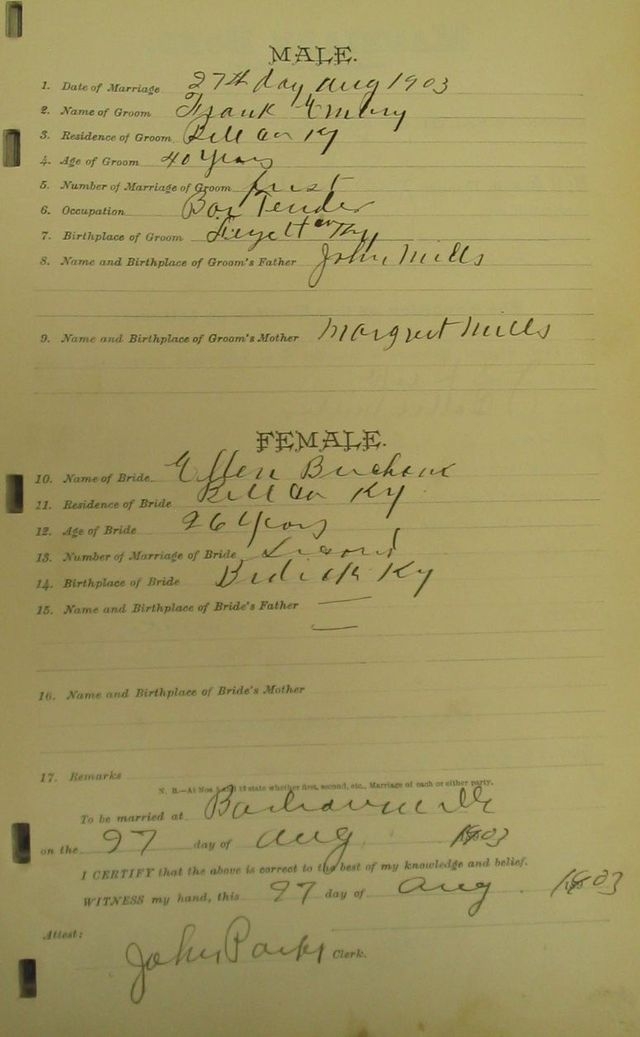 MALE.
1. Date of Marriage 27th day Aug 1903
2. Name of Groom Frank Emery
3. Residence of Groom Bell Co Ky
4. Age of Groom 40 Years
5. Number of Marriage of Groom first
6. Occupation Bar Tender
7. Birthplace of Groom
8. Name and Birthplace of Groom's Father John Mills
9. Name and Birthplace of Groom's Mother Margret Mills
FEMALE.
10. Name of Bride Ellen
11. Residence of Bride Bell Co Ky
12. Age of Bride 26 Years
13. Number of Marriage of Bride
14. Birthplace of Bride Ky
15. Name and Birthplace of Bride's Father
16. Name and Birthplace of Bride's Mother
17. Remarks
N. B.—At Nos 5 and 13 state whether first, second, etc., Marriage of each or either party.
To be married at
on the 27 day of Aug 1903
I CERTIFY that the above is correct to the best of my knowledge and belief.
WITNESS my hand, this 27 day of Aug 1903
Attest:
John Parks Clerk.